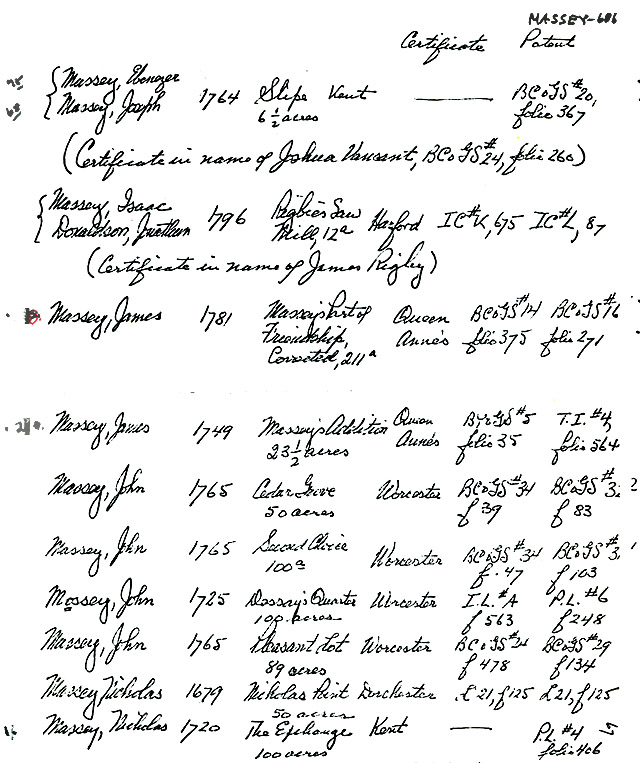 MASSEY-686
Certificate Patent
Massey, Ebenezer
Massey, Joseph 1764 Slipe Kent —— BC&GS #20,
6 1/2 acres folio 367
(Certificate in name of Joshua Vansant, BC&GS #24, folio 260)
Massey, Isaac
Donaldson, Jonathan 1796 Rigbie's Saw Mill, 12a Harford IC #K, 675 IC #L, 87
(Certificate in name of James Rigby)
Massey, James 1781 Massey's Part of Queen BC&GS #14 BC&GS #16
Friendship, Anne's folio 375 folio 271
Corrected, 211a
Massey, James 1749 Massey's Addition Queen BY&GS #5 T.I. #4,
23 1/2 acres Anne's folio 35 folio 564
Massey, John 1765 Cedar Grove Worcester BC&GS #34 BC&GS
50 acres f 39 f 83
Massey, John 1765 Second Choice Worcester BC&GS #34 BC&GS
100a f. 47 f 103
Massey, John 1725 Quarter Worcester I.L. #A P.L. #6
100 acres f 563 f 248
Massey, John 1765 Pleasant Lot Worcester BC&GS BC&GS #29
89 acres f 478 f 134
Massey, Nicholas 1679 Nicholas Point Dorchester L 21, f 125 L 21, f 125
50 acres
Massey, Nicholas 1720 The Exchange Kent —— P.L. #4
100 acres folio 406